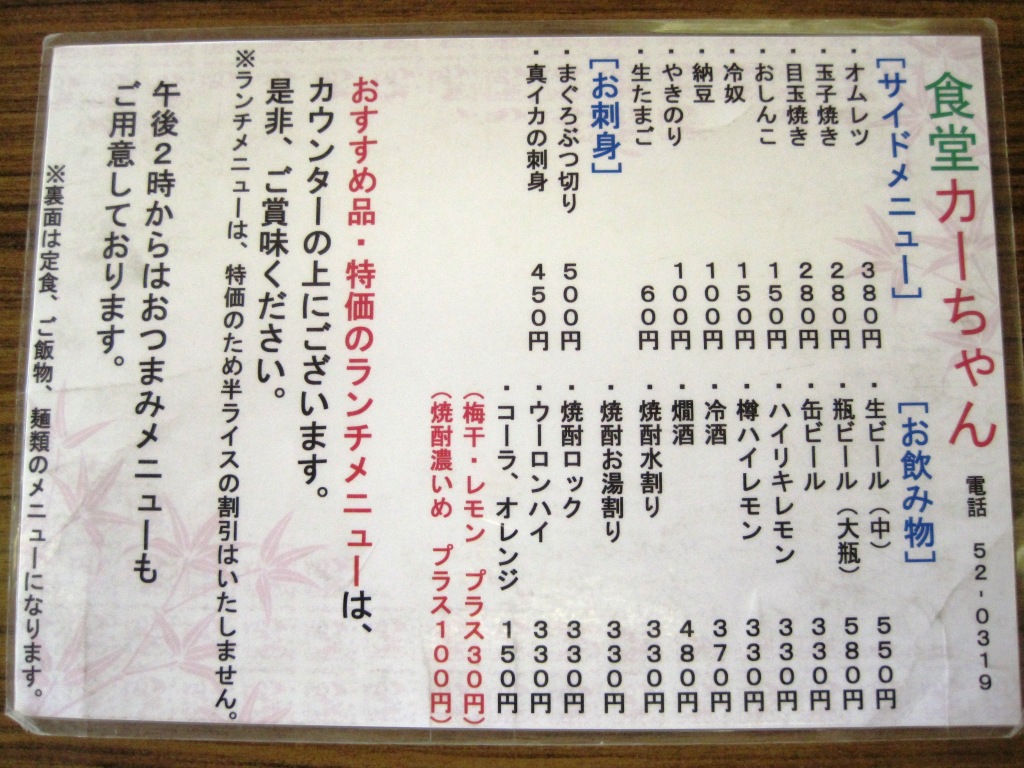 食堂カーちゃん 電話 52-0319
[サイドメニュー]
・オムレツ 380円
・玉子焼き 280円
・目玉焼き 280円
・おしんこ 150円
・冷奴 150円
・納豆 100円
・やきのり 100円
・生たまご 60円
[お刺身]
・まぐろぶつ切り 500円
・真イカの刺身 450円
[お飲み物]
・生ビール（中） 550円
・瓶ビール（大瓶） 580円
・缶ビール 330円
・ハイリキレモン 330円
・樽ハイレモン 330円
・冷酒 370円
・燗酒 480円
・焼酎水割り 330円
・焼酎お湯割り 330円
・焼酎ロック 330円
・ウーロンハイ 330円
・コーラ、オレンジ 150円
（梅干・レモン プラス30円）
（焼酎濃いめ プラス100円）
おすすめ品・特価のランチメニューは、
カウンターの上にございます。
是非、ご賞味ください。
※ランチメニューは、特価のため半ライスの割引はいたしません。
午後2時からはおつまみメニューも
ご用意しております。
※裏面は定食、ご飯物、麺類のメニューになります。